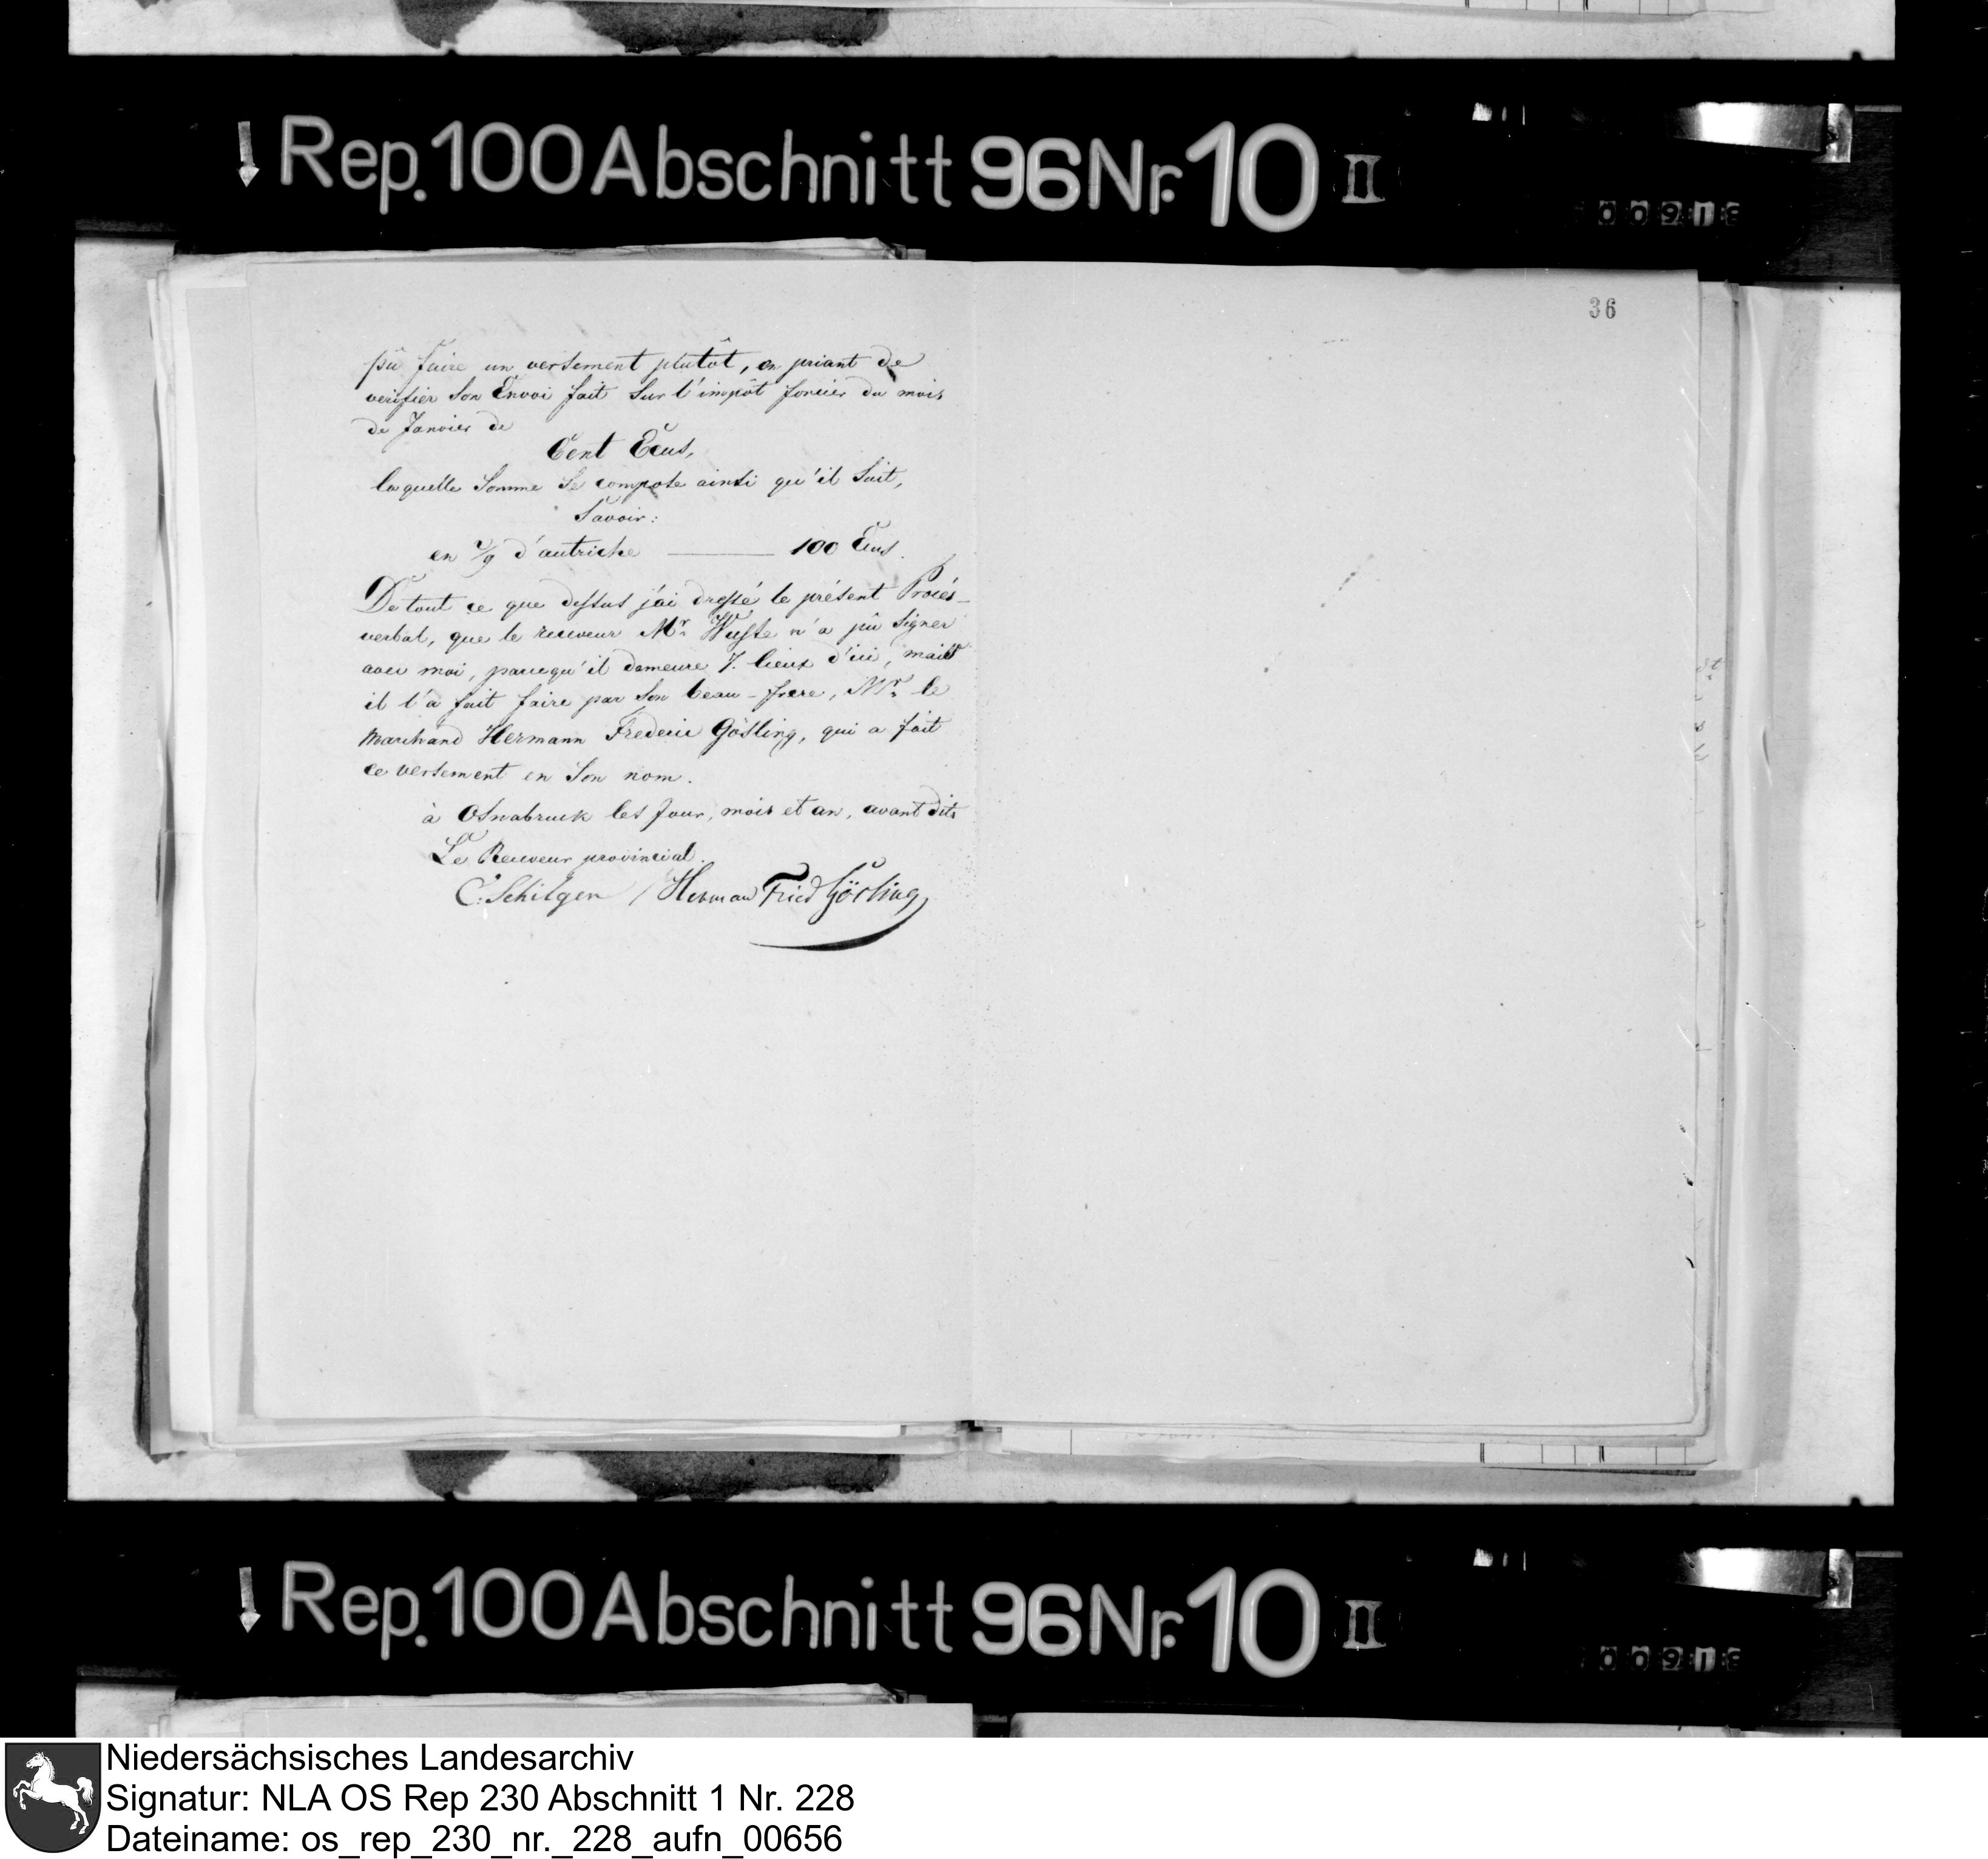 Rep. 100 Abschnitt 96 Nr. 10 II
36
pû faire un versement plutôt, en priant de
verifier son Envoi fait sur l'impôt foncier du mois
de Janvier de
Cent Ecus,
laquelle Somme se compose ainsi qu'il suit,
Savoir:
en d'autriche 100 Ecus.
De tout ce que dessus j'ai dressé le présent Procés-
verbal, que le receveur Mr. Wuste n'a pû signer
avec moi, parcequ'il demeure 7. lieux d'ici, mais
il l'a fait faire par son beau-frere, Mr. le
Marchand Hermann Frederic Gösling, qui a fait
ce versement en son nom.
à Osnabruck les Jour, mois et an, avant dits
Le Receveur provincial.
C. Schilgen / Herman Fried Gösling
Rep. 100 Abschnitt 96 Nr. 10 II
Niedersächsisches Landesarchiv
Signatur: NLA OS Rep 230 Abschnitt 1 Nr. 228
Dateiname: os_rep_230_nr._228_aufn_00656